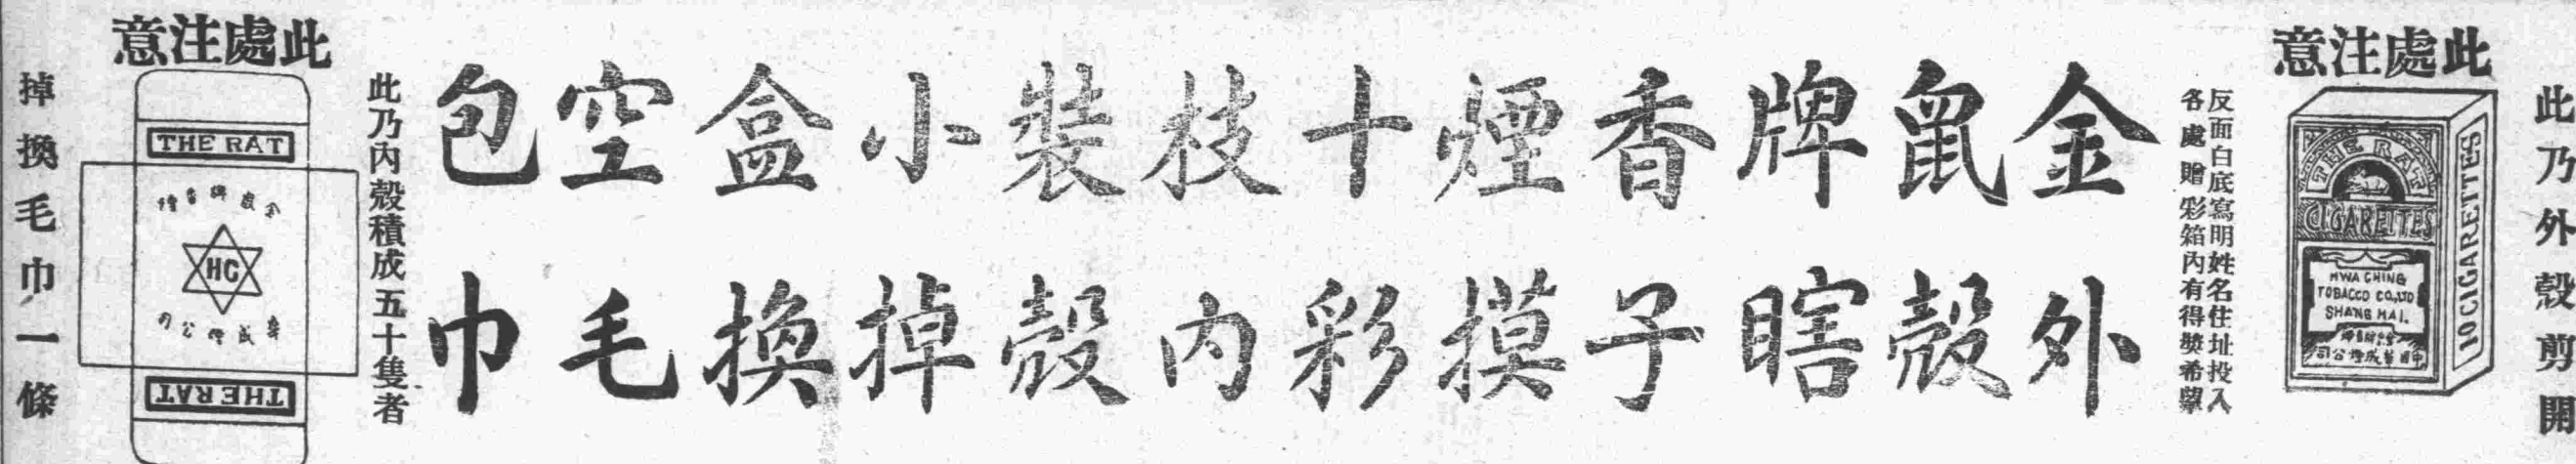 此處注意
此乃外殼剪開
THE RAT
CIGARETTES
HWA CHING
TOBACCO CO., LTD
SHANG HAI.
10 CIGARETTES
反面白底寫明姓名住址投入
各處贈彩箱內有得獎希望
金鼠牌香煙十枝裝小盒空包
外殼瞎子摸彩內殼掉換毛巾
此處注意
此乃內殼積成五十隻者
掉換毛巾一條
THE RAT
金鼠牌香煙
HC
華成煙公司
THE RAT